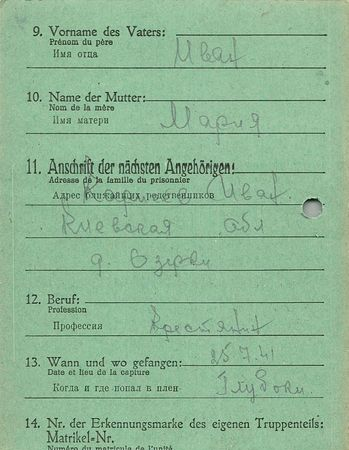 9. Vorname des Vaters:
Prénom du père
Имя отца
Иван
10. Name der Mutter:
Nom de la mère
Имя матери
Мария
11. Anschrift der nächsten Angehörigen:
Adresse de la famille du prisonnier
Адрес ближайших родственников
Иван
Киевская обл
д. Озерки
12. Beruf:
Profession
Профессия
крестянин
13. Wann und wo gefangen: 25.7.41
Date et lieu de la capture
Когда и где попал в плен
14. Nr. der Erkennungsmarke des eigenen Truppenteils:
Matrikel-Nr.
Numéro du matricule de l'unité